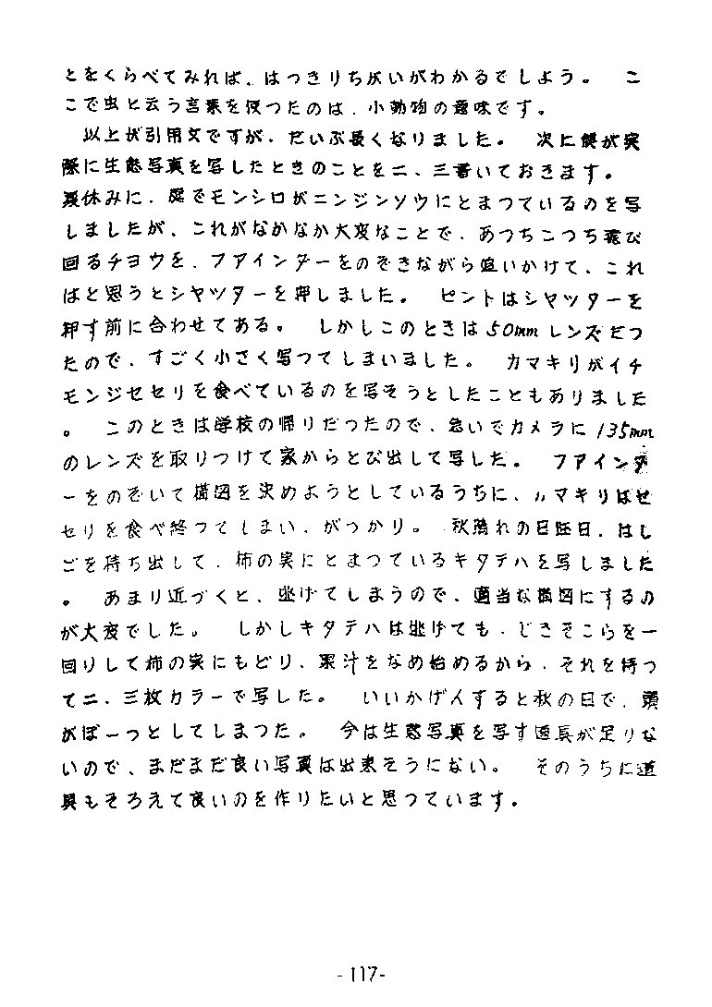 とをくらべてみれば、はっきりちがいがわかるでしょう。　こ
こで虫と云う言葉を使つたのは、小動物の意味です。
　以上が引用文ですが、だいぶ長くなりました。　次に僕が実
際に生態写真を写したときのことを二、三書いておきます。
夏休みに、庭でモンシロがニンジンソウにとまつているのを写
しましたが、これがなかなか大変なことで、あつちこつち飛び
回るチヨウを、フアインダーをのぞきながら追いかけて、これ
はと思うとシヤツターを押しました。　ピントはシヤツターを
押す前に合わせてある。　しかしこのときは50mmレンズだつ
たので、すごく小さく写つてしまいました。　カマキリがイチ
モンジセセリを食べているのを写そうとしたこともありました
。　このときは学校の帰りだつたので、急いでカメラに135mm
のレンズを取りつけて家からとび出して写した。　フアインダ
ーをのぞいて構図を決めようとしているうちに、カマキリはセ
セリを食べ終つてしまい、がつかり。　秋晴れの日曜日、はし
ごを持ち出して、柿の実にとまつているキタテハを写しました
。　あまり近づくと、逃げてしまうので、適当な構図にするの
が大変でした。　しかしキタテハは逃げても、じきそこらを一
回りして柿の実にもどり、果汁をなめ始めるから、それを待つ
て二、三枚カラーで写した。　いいかげんすると秋の日で、頭
がぼーつとしてしまつた。　今は生態写真を写す道具が足りな
いので、まだまだ良い写真は出来そうにない。　そのうちに道
具もそろえて良いのを作りたいと思つています。
-117-